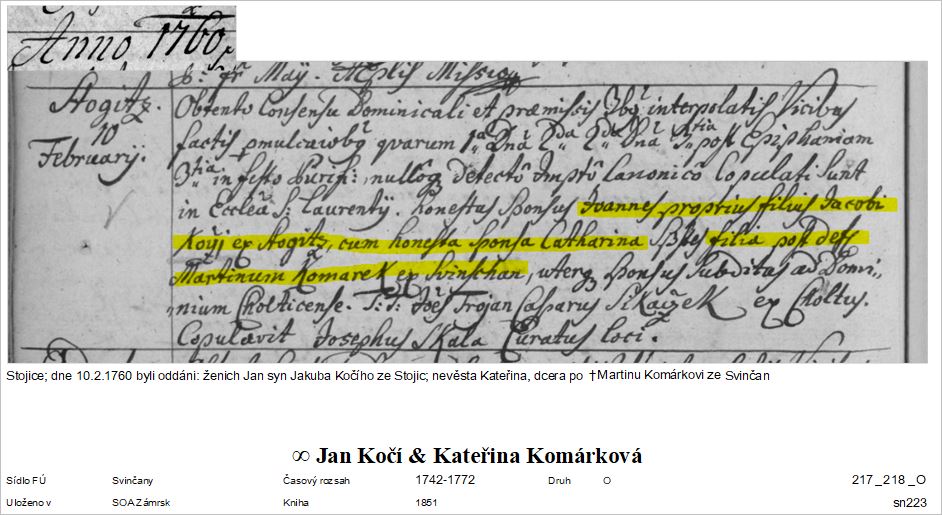 Anno 1760
May. Aplis Missio
Stogitz.
10
February.
Obtento Consensu Dominicali et præmissis interpolatis Vicibus
factis quarum post Epiphaniam
in festo Purif: nulloq detecto Canonico Copulati Sunt
in Eccleã S: Laurentij. honestus Sponsus Joannes proprius filius Jacobi
Kočj ex Stogitz, cum honesta Sponsa Catharina filia post
Martinum Komarek ex Svinčan, uterq Sponsus Subditus ad Domi-
nium Cholticense. Trojan Casparus ex Choltus.
Copulavit Josephus Skala Curatus loci.
Stojice; dne 10.2.1760 byli oddáni: ženich Jan syn Jakuba Kočího ze Stojic; nevěsta Kateřina, dcera po †Martinu Komárkovi ze Svinčan
∞ Jan Kočí & Kateřina Komárková
Sídlo FÚ Svinčany Časový rozsah 1742-1772 Druh O 217_218_O
Uloženo v SOA Zámrsk Kniha 1851 sn223